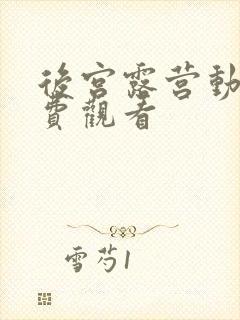 後宮露营動
費觀看
雪芍1